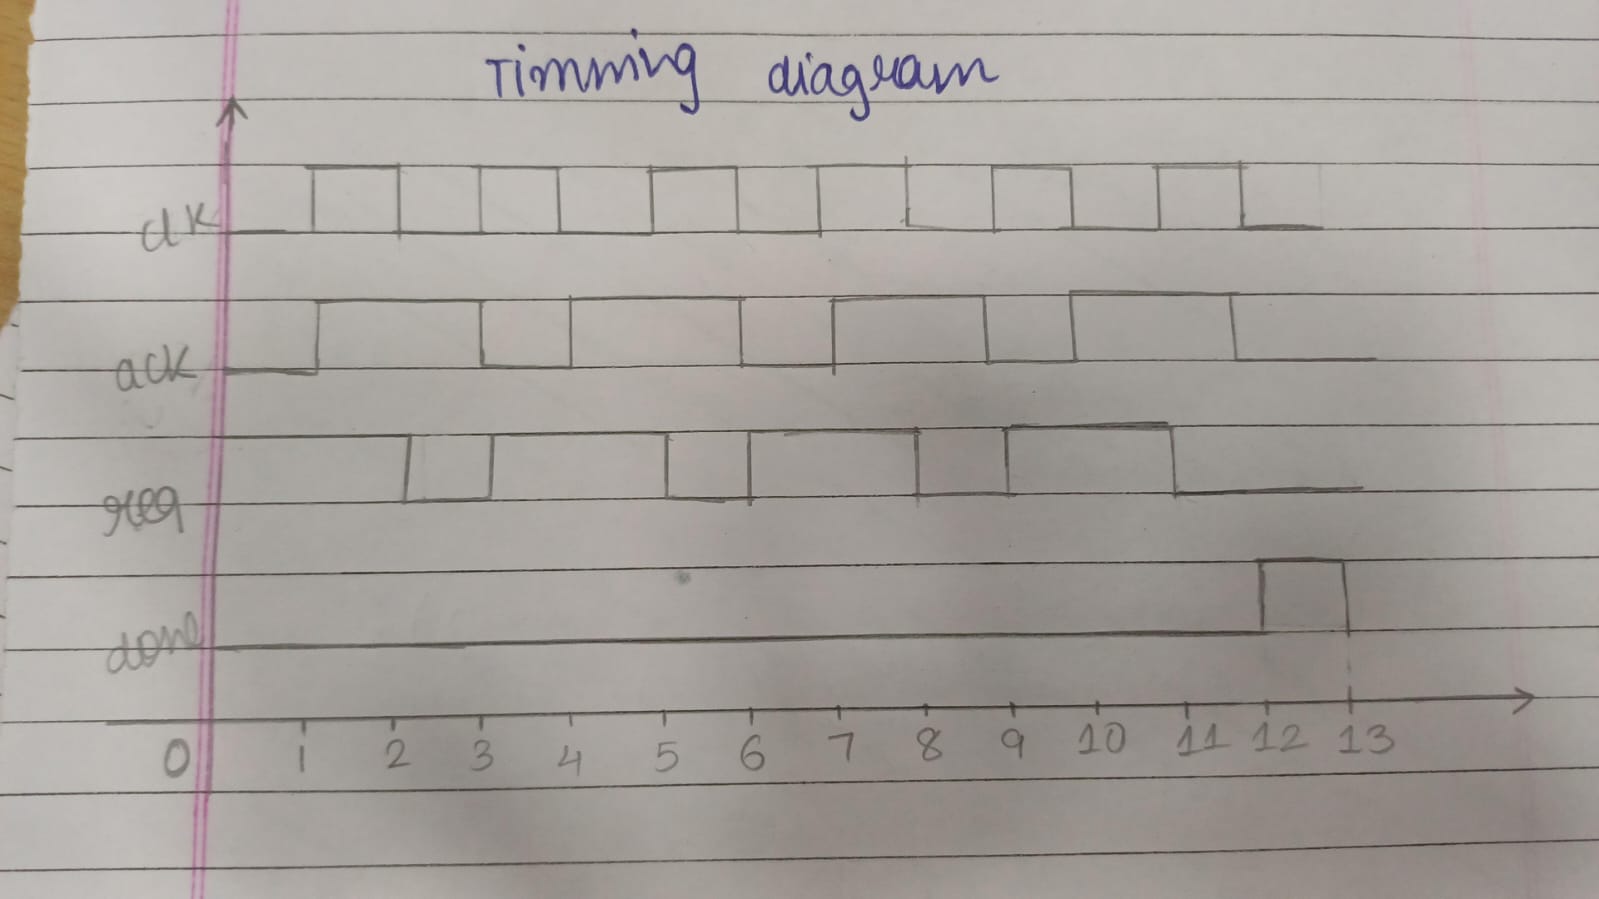 Timming diagram
clk
ack
req
done
0 1 2 3 4 5 6 7 8 9 10 11 12 13